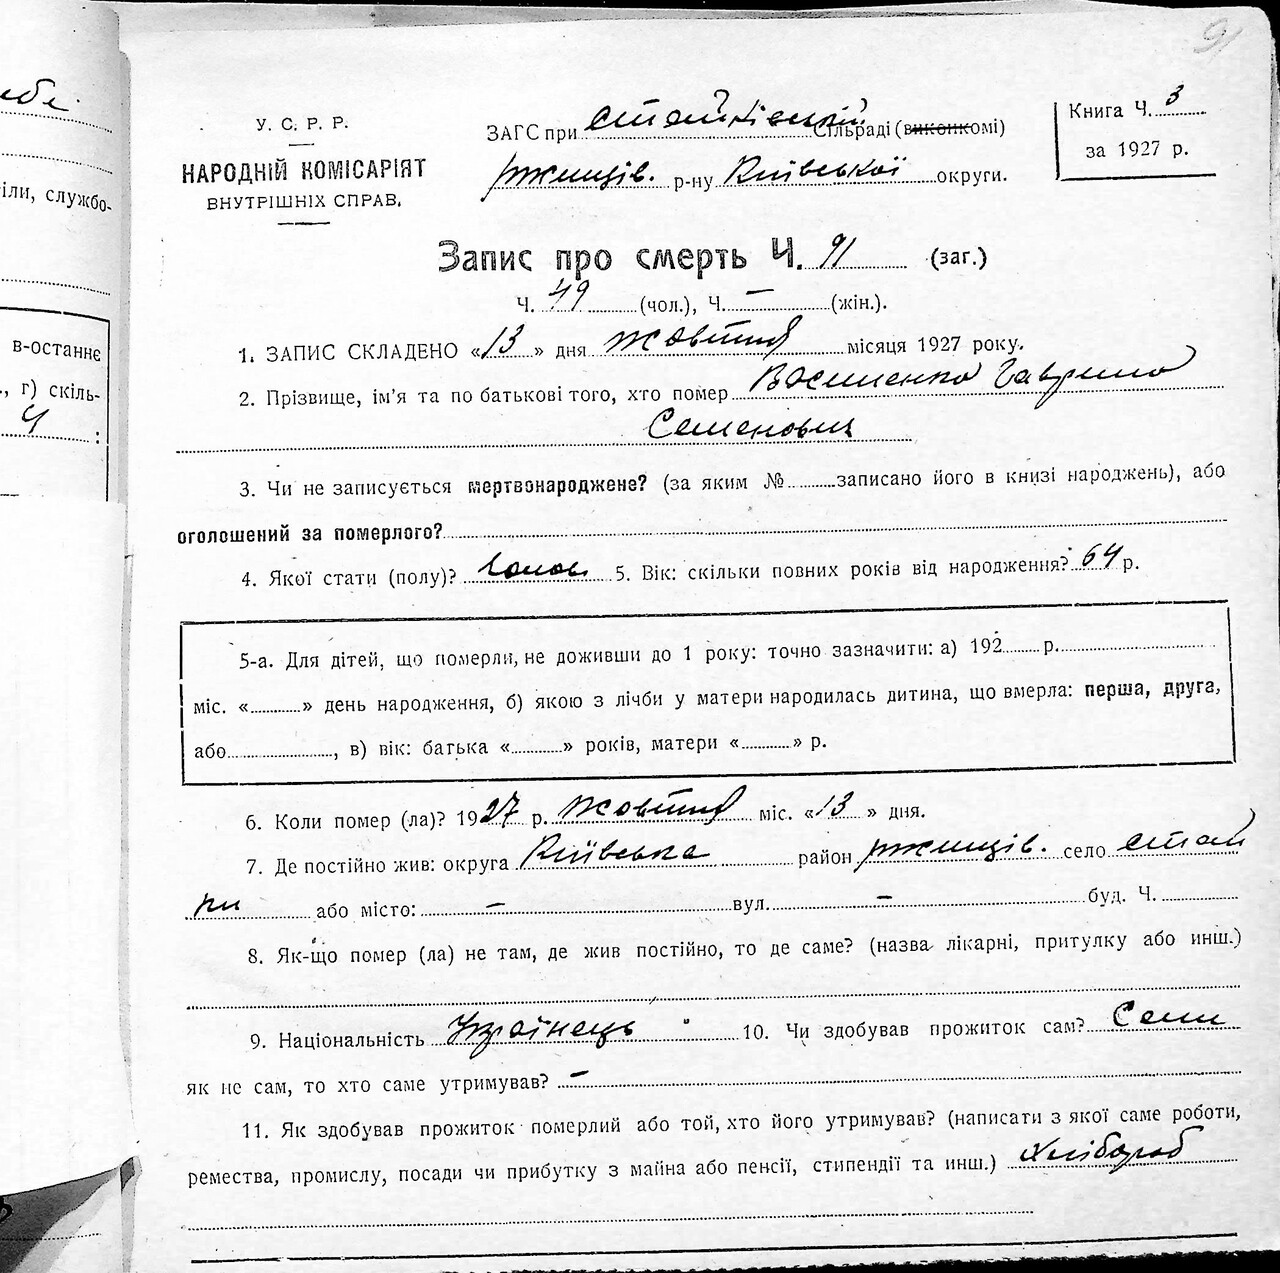 91
У. С. Р. Р.
НАРОДНІЙ КОМІСАРІЯТ
ВНУТРІШНІХ СПРАВ.
ЗАГС при Стайківській Сільраді (виконкомі)
Ржищів. р-ну Київської округи.
Книга Ч. 3
за 1927 р.
Запис про смерть Ч. 91 (заг.)
Ч. 49 (чол.), Ч. — (жін.).
1. ЗАПИС СКЛАДЕНО «13» дня жовтня місяця 1927 року.
2. Прізвище, ім'я та по батькові того, хто помер Гаврило
Семенович
3. Чи не записується мертвонароджене? (за яким № записано його в книзі народжень), або
оголошений за померлого?
4. Якої стати (полу)? 5. Вік: скільки повних років від народження? 64 р.
5-а. Для дітей, що померли, не доживши до 1 року: точно зазначити: а) 192 р.
міс. « » день народження, б) якою з лічби у матери народилась дитина, що вмерла: перша, друга,
або , в) вік: батька « » років, матери « » р.
6. Коли помер (ла)? 1927 р. жовтня міс. «13» дня.
7. Де постійно жив: округа Київська район Ржищів. село Стай
ки або місто: — вул. — буд. Ч.
8. Як-що помер (ла) не там, де жив постійно, то де саме? (назва лікарні, притулку або инш.)
9. Національність Українець 10. Чи здобував прожиток сам? Сам
як не сам, то хто саме утримував? —
11. Як здобував прожиток померлий або той, хто його утримував? (написати з якої саме роботи,
ремества, промислу, посади чи прибутку з майна або пенсії, стипендії та инш.) Хлібороб
іли, службо-
в-останнє
., г) скіль-
4 :